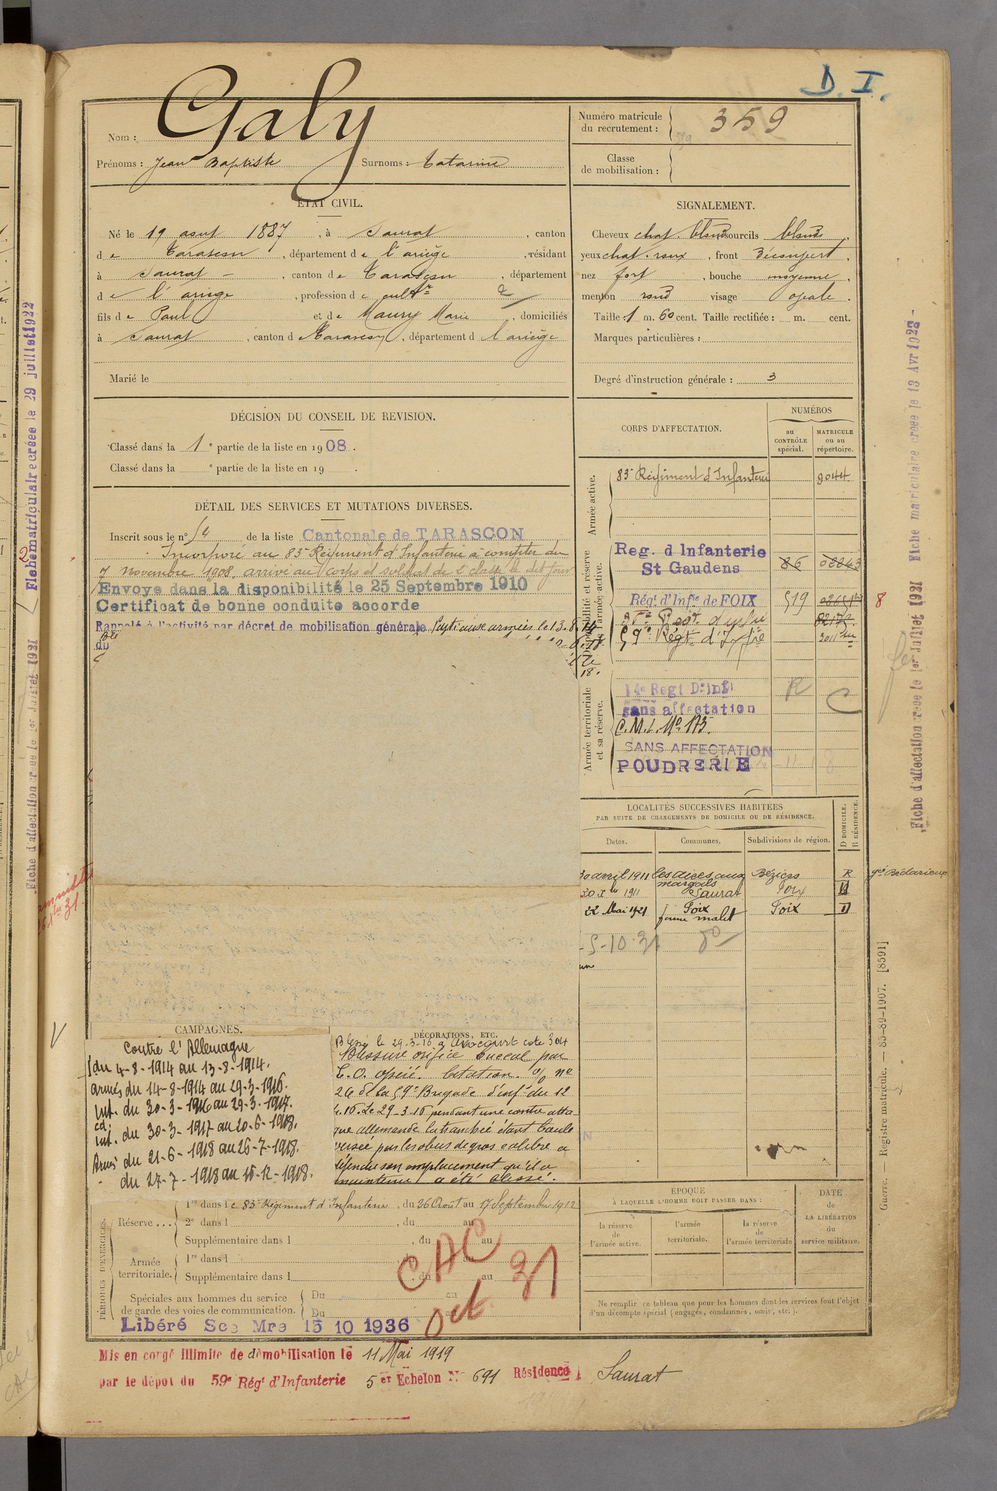 D. I.
Galy
Nom :
Prénoms : Jean Baptiste Surnoms : Catarine
Numéro matricule du recrutement : 359
Classe de mobilisation :
ÉTAT CIVIL.
Né le 19 aout 1887, à Saurat, canton
de Tarascon, département de l'ariège, résidant
à Saurat, canton de Tarascon, département
de l'ariège, profession de cultr
fils de Paul et de Maury Marie, domiciliés
à Saurat, canton de Tarascon, département de l'ariège
Marié le
SIGNALEMENT.
Cheveux chat. blond sourcils blonds
yeux chat. roux, front découvert,
nez fort, bouche moyenne,
menton rond visage ovale.
Taille 1 m. 60 cent. Taille rectifiée : m. cent.
Marques particulières :
Degré d'instruction générale : 3
DÉCISION DU CONSEIL DE REVISION.
Classé dans la 1e partie de la liste en 1908.
Classé dans la e partie de la liste en 19 .
DÉTAIL DES SERVICES ET MUTATIONS DIVERSES.
Inscrit sous le n° 54 de la liste Cantonale de TARASCON
Incorporé au 83e Régiment d'Infanterie à compter du
7 novembre 1908, arrivé au corps et soldat de 2e classe le dit jour
Envoyé dans la disponibilité le 25 Septembre 1910
Certificat de bonne conduite accordé
Rappelé à l'activité par décret de mobilisation générale
CORPS D'AFFECTATION.
NUMÉROS
au CONTRÔLE spécial.
MATRICULE ou au répertoire.
Armée active.
83e Régiment d'Infanterie 9044
Disponibilité et réserve de l'armée active.
Reg. d Infanterie
St Gaudens 86
Régt d'Infie de FOIX 519
59e Régt d'Infie
8
Armée territoriale et sa réserve.
14e Regt D'inf
sans affectation R C
C.M.I. No 173.
SANS AFFECTATION
POUDRERIE
LOCALITÉS SUCCESSIVES HABITÉES
PAR SUITE DE CHANGEMENTS DE DOMICILE OU DE RÉSIDENCE.
Dates. Communes. Subdivisions de région. D DOMICILE. R RÉSIDENCE.
30 avril 1911 les aires aux Béziers R
1911 Saurat Foix
22 Mai 1921 Foix Foix D
ferme malet
5-10-31
CAMPAGNES.
Contre l'Allemagne
du 4-8-1914 au 13-8-1914.
Armées du 14-8-1914 au 29-3-1916.
Int. du 30-3-1916 au 29-3-1917.
Int. du 30-3-1917 au 20-6-1918.
Armées du 21-6-1918 au 26-7-1918.
du 27-7-1918 au 10-12-1918.
DÉCORATIONS, ETC.
Blessé le 29-3-16 à Avocourt cote 304
Blessure orifice buccal par
E.O. opéré. Citation. O/ no
26 de la 59e Brigade d'inf. du 12
4.16. Le 29-3-16 pendant une contre atta
que allemande la tranchée étant boule
versée par les obus de gros calibre a
défendu son emplacement qu'il a
maintenu a été blessé.
PÉRIODES D'EXERCICES.
Réserve ... 1re dans le 83e Régiment d'Infanterie, du 26 Août au 17 Septembre 1912
2e dans l , du au
Supplémentaire dans l , du au
Armée territoriale. 1re dans l , du au
Supplémentaire dans l , du au
Spéciales aux hommes du service de garde des voies de communication. Du au
Du au
CAC
Oct. 31
Libéré Sce Mre 15 10 1936
ÉPOQUE
À LAQUELLE L'HOMME DOIT PASSER DANS :
la réserve de l'armée active.
l'armée territoriale.
la réserve de l'armée territoriale
DATE de LA LIBÉRATION du service militaire.
Ne remplir ce tableau que pour les hommes dont les services font l'objet
d'un décompte spécial (engagés, condamnés, omis, etc.).
Mis en congé illimité de démobilisation le 11 Mai 1919
par le dépôt du 59e Régt d'Infanterie 5er Echelon No 691 Résidence Saurat
Fiche matriculaire créée le 29 juillet 1922
Fiche d'affectation créée le 1er Juillet 1931
Fiche d'affectation créée le 1er Juillet 1931 Fiche matriculaire créée le 13 Avr 1923
Guerre. — Registre matricule. — 83-89-1907. [8591]